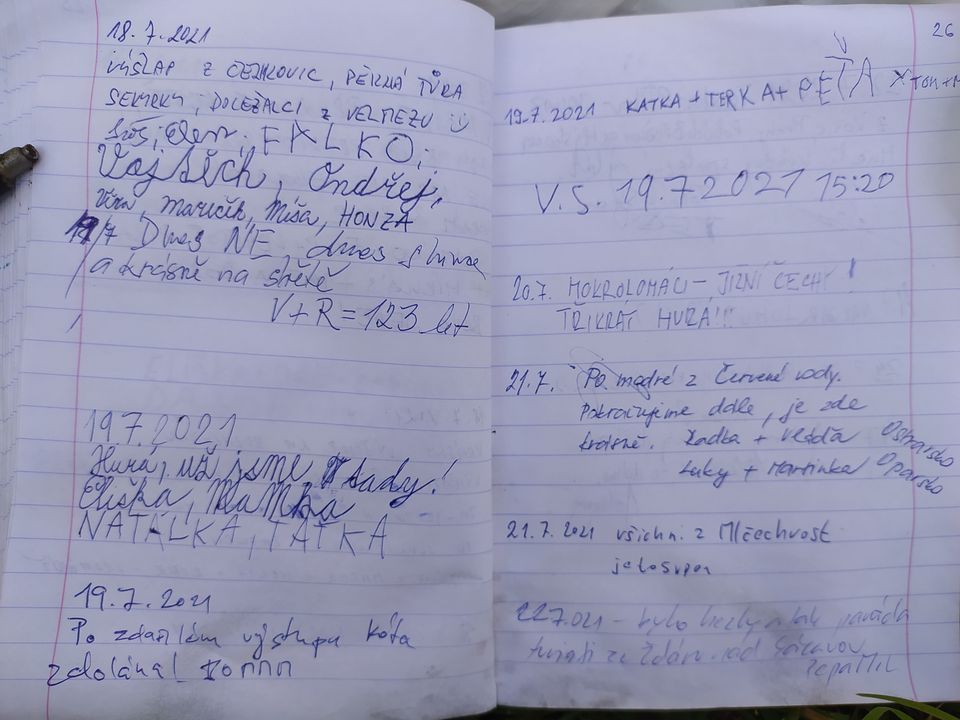 18.7.2021
VÝŠLAP Z ČEJKOVIC, PĚKNÁ TŮRA
SEKYRKY, DOLEŽALCI Z VELMEZU
FALKO;
Vojtěch, Ondřej,
Věra, Mařenka, Míša, HONZA
19/7 Dnes NE dnes slunce
a krásně na světě
V+R=123 let
19.7.2021
Hurá, už jsme tady!
Eliška, MaMka
NATÁLKA, TAŤKA
19.7.2021
Po zdařilém výstupu kóta
zdolána!
26
19.7.2021 KATKA + TERKA + PÉŤA
V.S. 19.7.2021 15:20
20.7. MOKROLOMÁCI - JIŽNÍ ČECHY!
TŘIKRÁT HURÁ!!!
21.7. Po modré z Červené vody.
Pokračujeme dále, je zde
krásně. Radka +
Luky + Martinka
Ostravsko
Opavsko
21.7.2021 všichni z Mlčechvost
jetosuper
22.7.021 - bylo hezky a tak paráda
turisti ze Žďáru nad Sázavou